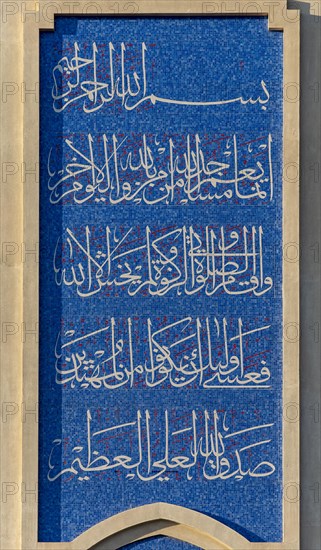 بسم الله الرحمن الرحيم
إنما يعمر مساجد الله من آمن بالله واليوم الآخر
وأقام الصلاة وآتى الزكاة ولم يخش إلا الله
فعسى أولئك أن يكونوا من المهتدين
صدق الله العلي العظيم